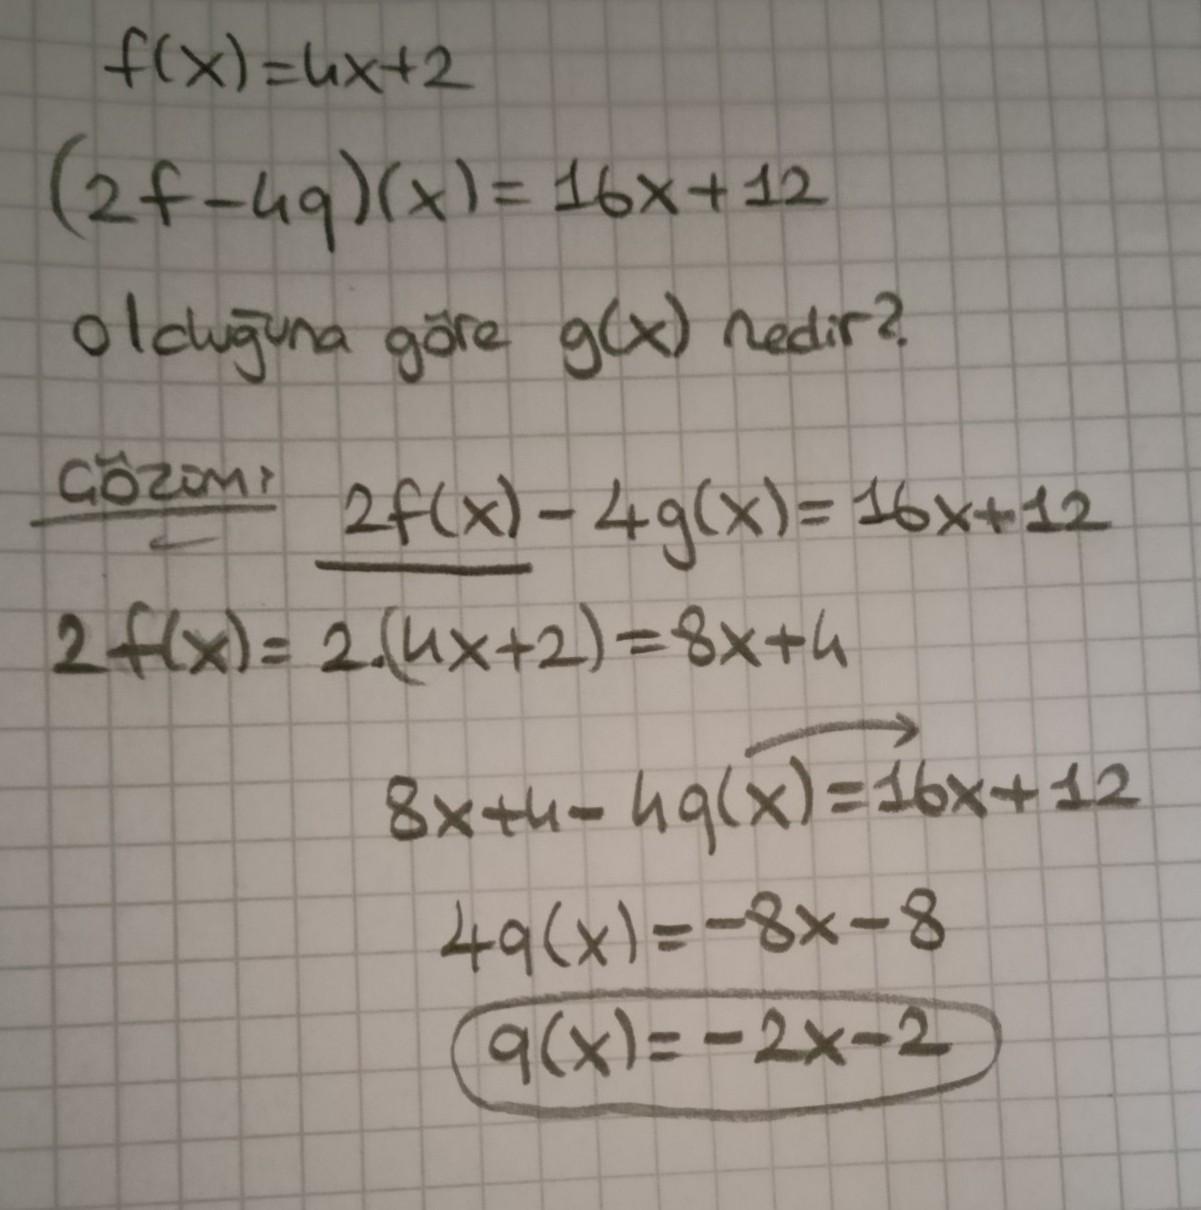 f(x)=4x+2
(2f-4g)(x)=16x+12
olduğuna göre g(x) nedir?
ÇÖZÜM: 2f(x)-4g(x)=16x+12
2f(x)=2.(4x+2)=8x+4
8x+4-4g(x)=16x+12
4g(x)=-8x-8
g(x)=-2x-2